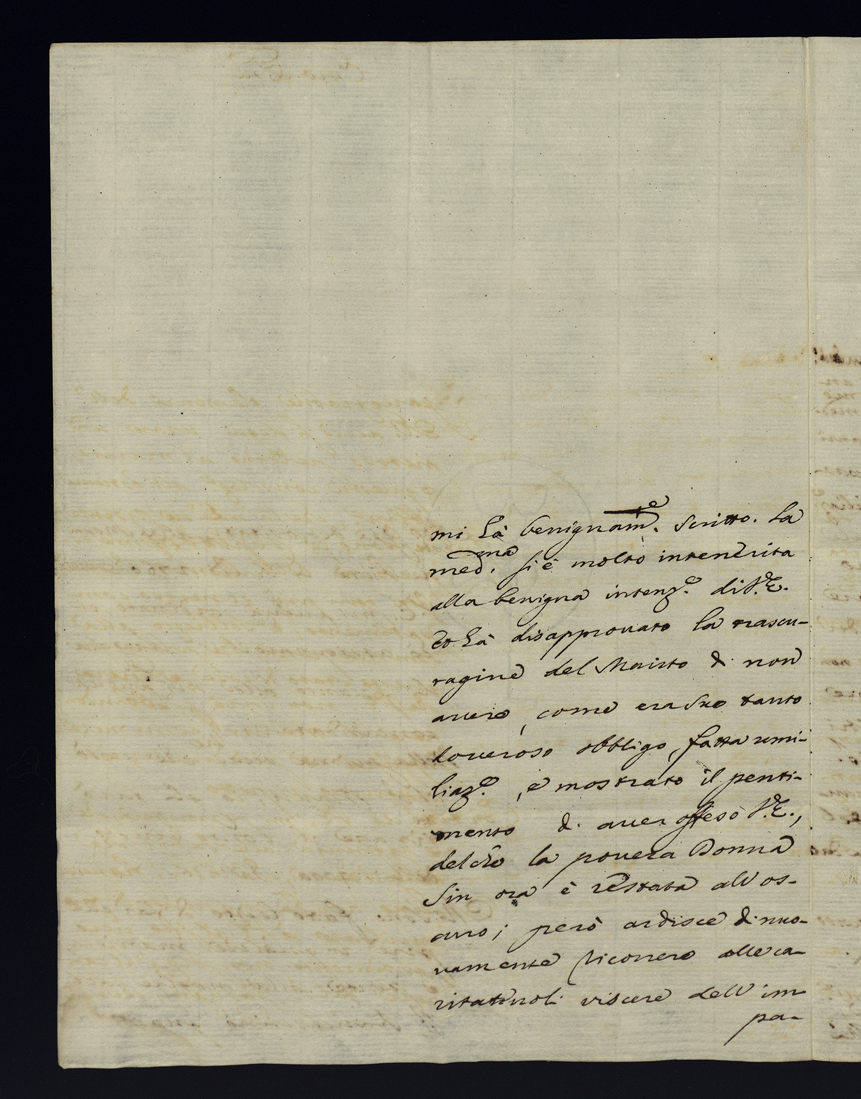 mi hà benignam.e scritto. La
med.ma si è molto intenerita
alla benigna intenz.e di V.E.
ed hà disapprovato la trascu-
ragine del Marito di non
avere, come era suo tanto
doveroso obbligo, fatta umi-
liaz.e, e mostrato il penti-
mento di aver offeso V.E.,
del che la povera Donna
Sin ora è restata all'os-
curo; però ardisce di nuo-
vamente ricorrere alle ca-
ritatevoli viscere dell'im
pa-